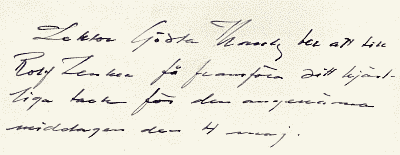 Lektor Gösta ber att till
Rolf få framföra sitt hjärt-
liga tack för den angenäma
middagen den 4 maj.